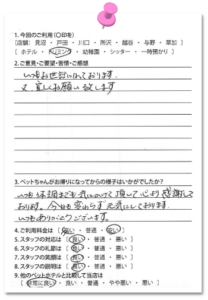 1.今回のご利用（○印を）
［店舗： 見沼 ・ 戸田 ・ 川口 ・ 所沢 ・ 越谷 ・ 与野 ・ 草加 ］
［ ホテル ・ トリミング ・ 幼稚園 ・ シッター ・ 一時預かり ］
2.ご意見・ご要望・苦情・ご感想
いつもお世話になっております。
又、宜しくお願い致します
3.ペットちゃんがお帰りになってからの様子はいかがでしたか？
いつも体調まで気にかけて頂いて心より感謝して
おります。今日も変わらず元気にしております。
いつもありがとうございます。
4.ご利用料金は（ 高い ・ 普通 ・ 安い ）
5.スタッフの対応は（ 良い ・ 普通 ・ 悪い ）
6.スタッフの服装は（ 良い ・ 普通 ・ 悪い ）
7.スタッフの笑顔は（ 良い ・ 普通 ・ 悪い ）
8.スタッフの説明は（ 良い ・ 普通 ・ 悪い ）
9.他のペットホテルと比較して当店は
（ 非常に良い ・ 良い ・ 普通 ・ やや悪い ・ 悪い ）